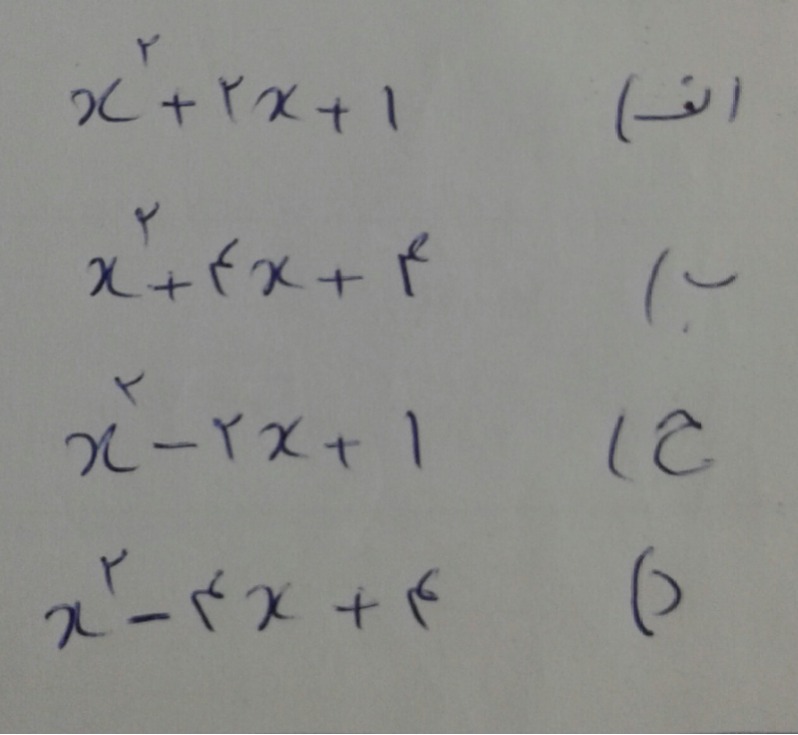 الف) x² + ۲x + ۱
ب) x² + ۴x + ۴
ج) x² - ۲x + ۱
د) x² - ۴x + ۴